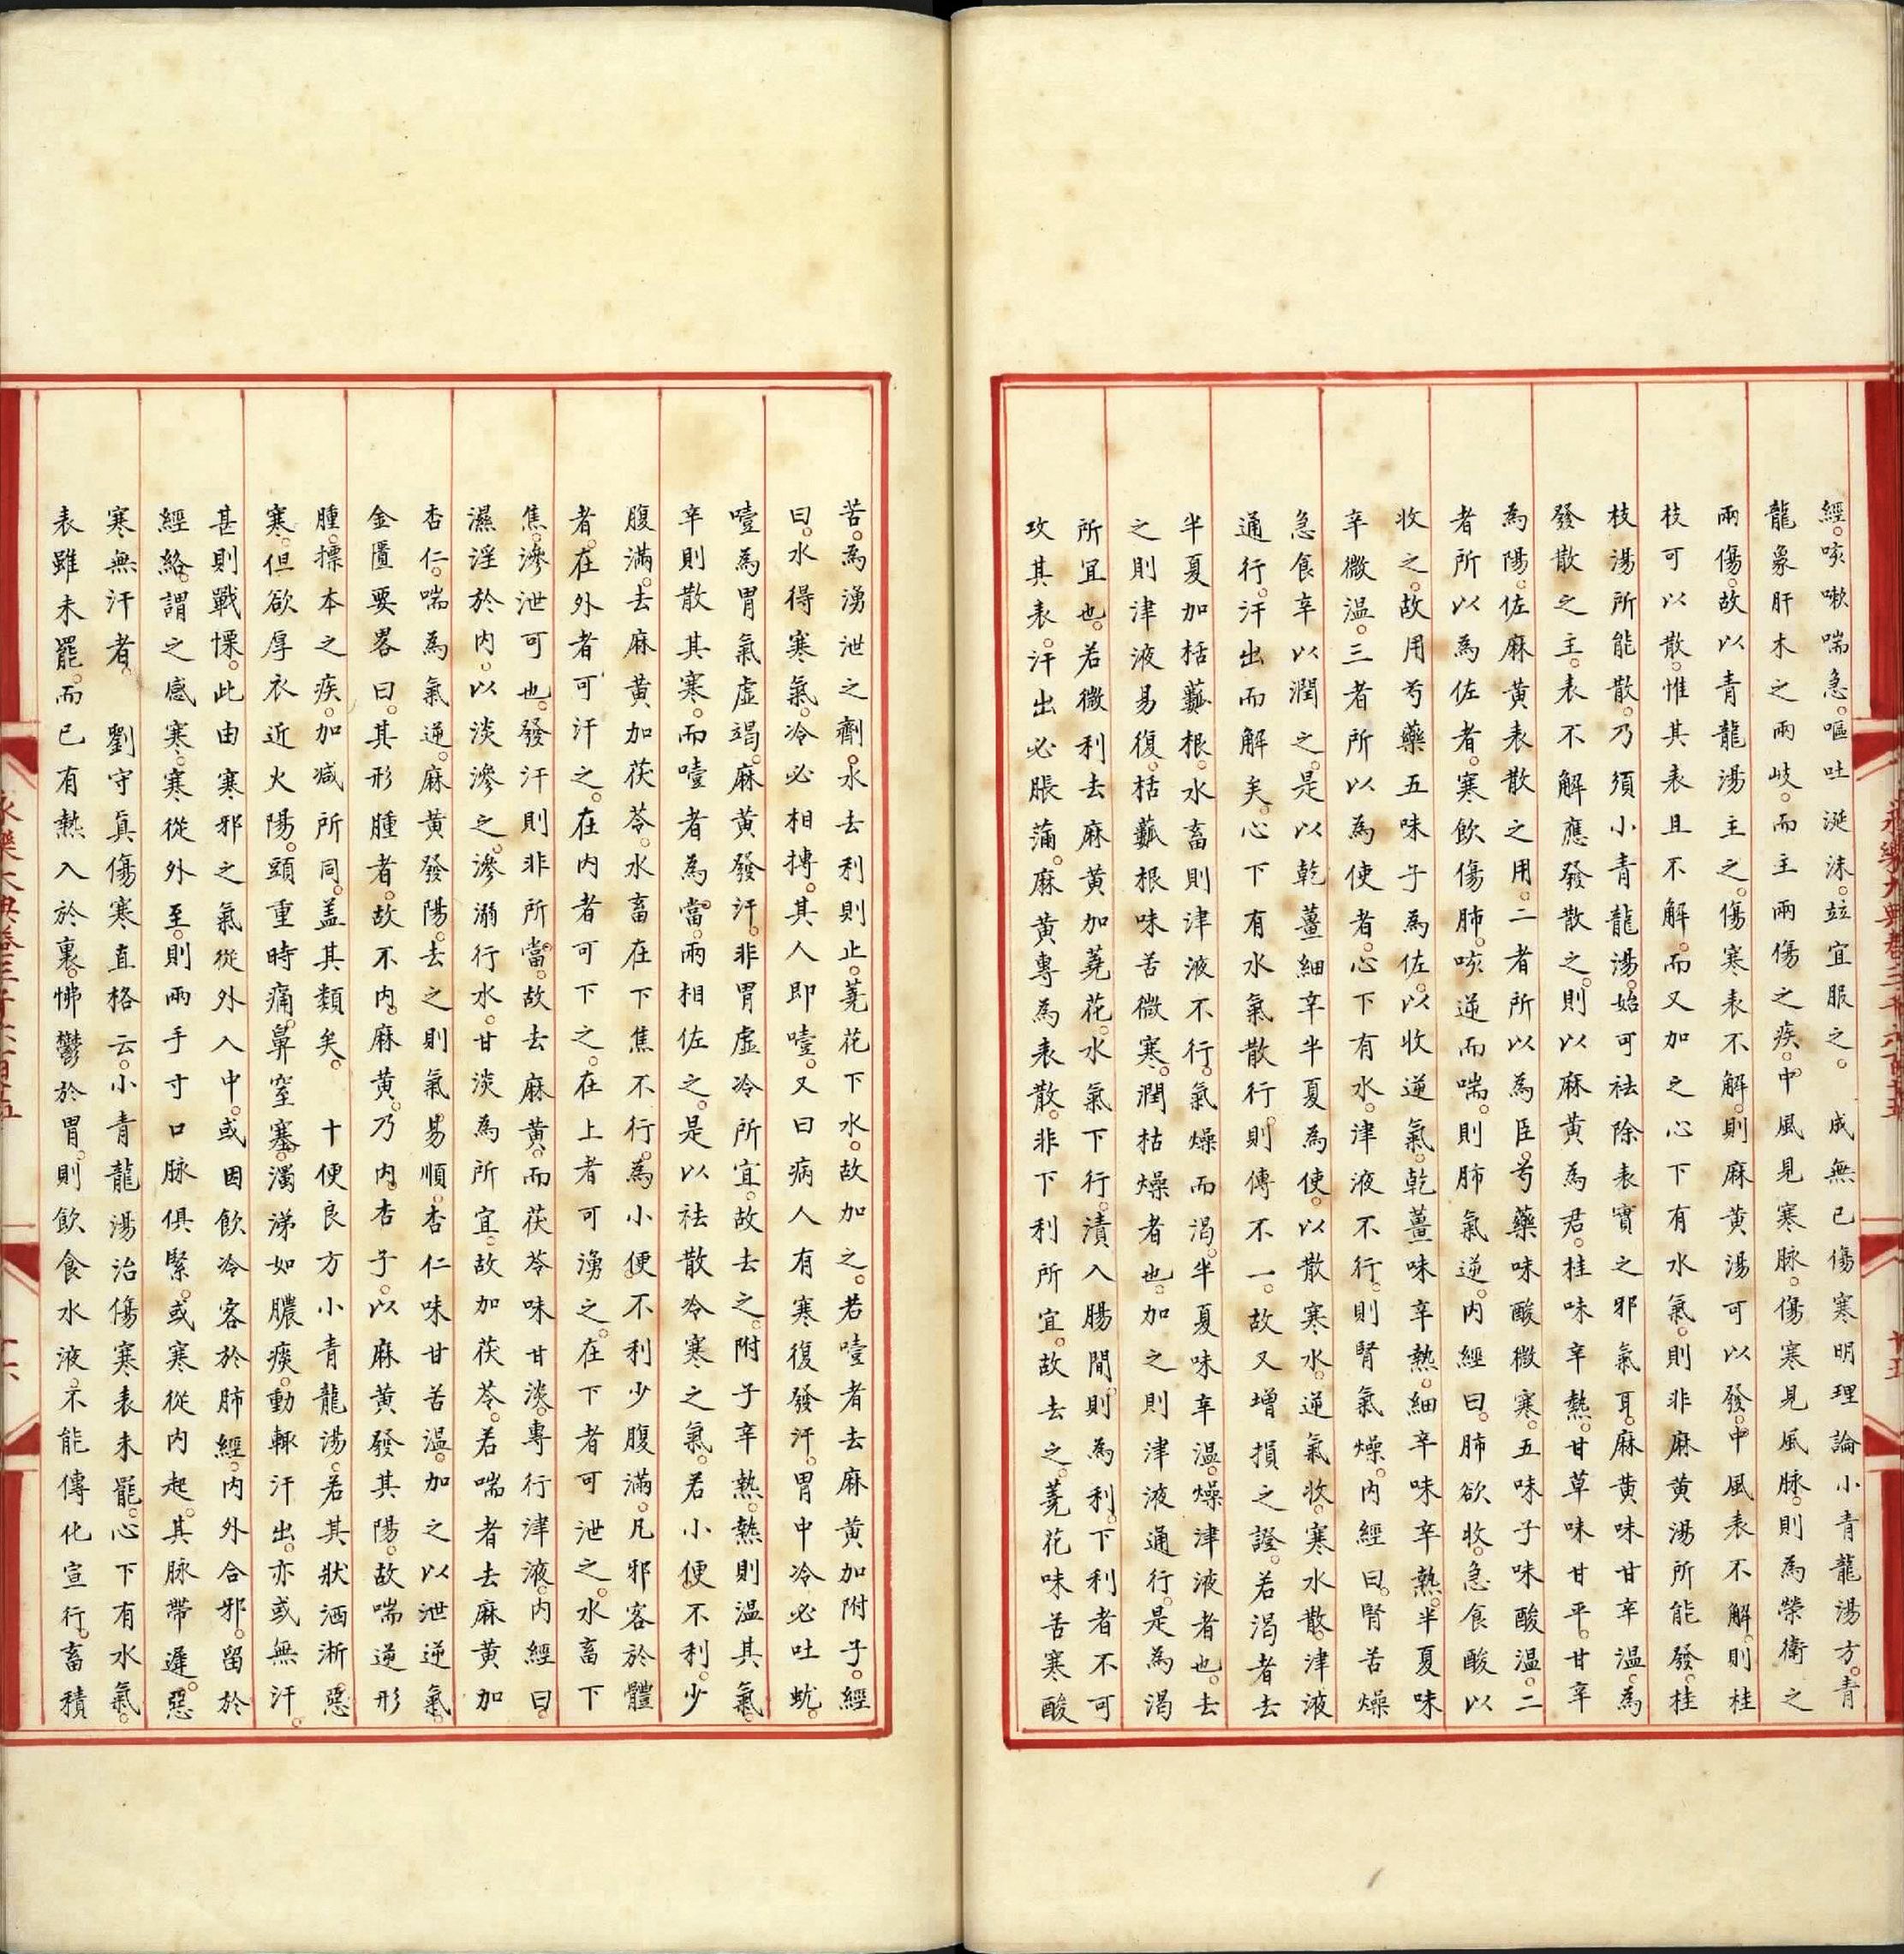 經。咳嗽喘急。嘔吐涎沫。竝宜服之。　成無已傷寒明理論小青龍湯方。青
龍象肝木之兩岐。而主兩傷之疾。中風見寒脉。傷寒見風脉。則為榮衛之
兩傷。故以青龍湯主之。傷寒表不解。則麻黄湯可以發。中風表不解。則桂
枝可以散。惟其表且不解。而又加之心下有水氣。則非麻黄湯所能發。桂
枝湯所能散。乃須小青龍湯。始可祛除表實之邪氣耳。麻黄味甘辛温。為
發散之主。表不解應發散之。則以麻黄為君。桂味辛熱。甘草味甘平。甘辛
為陽。佐麻黄表散之用。二者所以為臣。芍藥味酸微寒。五味子味酸温。二
者所以為佐者。寒飲傷肺。咳逆而喘。則肺氣逆。内經曰。肺欲收。急食酸以
收之。故用芍藥五味子為佐。以收逆氣。乾薑味辛熱。細辛味辛熱。半夏味
辛微温。三者所以為使者。心下有水。津液不行。則腎氣燥。内經曰。腎苦燥
急食辛以潤之。是以乾薑細辛半夏為使。以散寒水。逆氣收。寒水散。津液
通行。汗出而解矣。心下有水氣散行。則傳不一。故又增損之證。若渴者去
半夏加栝蔞根。水畜則津液不行。氣燥而渴。半夏味辛温。燥津液者也。去
之則津液易復。栝蔞根味苦微寒。潤枯燥者也。加之則津液通行。是為渴
所宜也。若微利去麻黄加蕘花。水氣下行。漬入腸間。則為利。下利者不可
攻其表。汗出必脹滿。麻黄專為表散。非下利所宜。故去之。蕘花味苦寒酸
苦。為湧泄之劑。水去利則止。蕘花下水。故加之。若噎者去麻黄加附子。經
曰。水得寒氣。冷必相搏。其人即噎。又曰病人有寒復發汗。胃中冷必吐蚘。
噎為胃氣虚竭。麻黄發汗。非胃虚冷所宜。故去之。附子辛熱。熱則温其氣。
辛則散其寒。而噎者為當。兩相佐之。是以祛散冷寒之氣。若小便不利。少
腹滿。去麻黄加茯苓。水畜在下焦不行。為小便不利少腹滿。凡邪客於體
者。在外者可汗之。在内者可下之。在上者可湧之。在下者可泄之。水畜下
焦。滲泄可也。發汗則非所當。故去麻黄。而茯苓味甘淡。專行津液。内經曰。
濕淫於内。以淡滲之。滲溺行水。甘淡為所宜。故加茯苓。若喘者去麻黄加
杏仁。喘為氣逆。麻黄發陽。去之則氣易順。杏仁味甘苦温。加之以泄逆氣。
金匱要畧曰。其形腫者。故不内麻黄。乃内杏子。以麻黄發其陽。故喘逆形
腫。摽本之疾。加減所同。盖其類矣。　十便良方小青龍湯。若其狀洒淅惡
寒。但欲厚衣近火陽。頭重時痛。鼻窒塞。濁涕如膿痰。動輒汗出。亦或無汗。
甚則戰慄。此由寒邪之氣從外入中。或因飲冷客於肺經。内外合邪。留於
經絡。謂之感寒。寒從外至。則兩手寸口脉俱緊。或寒從内起。其脉帶遲。惡
寒無汗者。　劉守真傷寒直格云。小青龍湯治傷寒表未罷。心下有水氣。
表雖未罷。而已有熱入於裏。怫鬱於胃。則飲食水液。不能傳化宣行。畜積